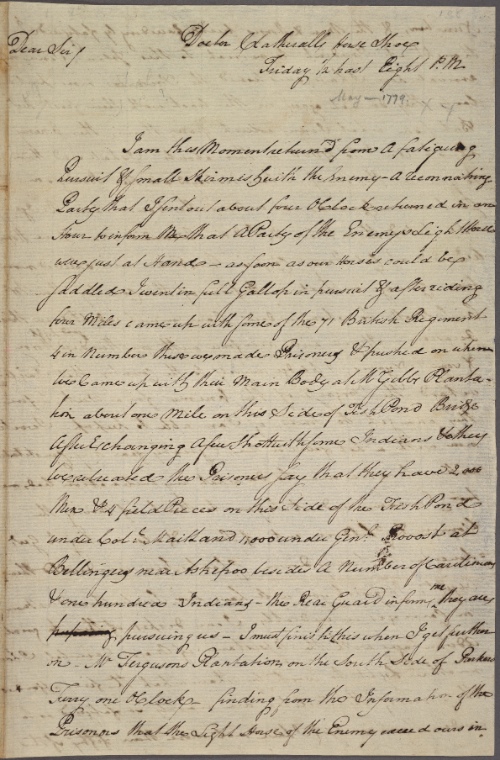 Doctor Clatheralls Horse Shoe
Dear Sir/
Friday ½ past Eight P.M
May — 1779
I am this Moment return'd from A fatiguing
Pursuit & small Skirmish with the Enemy — A reconnoitring
Party that I sent out about four O Clock returned in an
Hour to inform Me that A Party of the Enemys Light Horse
were just at Hand — as soon as our Horses could be
saddled I went in full Gallop in pursuit & after riding
four Miles came up with some of the 71 British Regiment
4 in Number these we made Prisoners & pushed on when
we came up with their Main Body at Mr Gibbs Planta-
tion about one Mile on this Side of Fish Pond Bridge
After Exchanging A few Shott with some Indians & they
we retreated the Prisoners say that they have 2,000
Men & 4 field Pieces on this Side of the Fresh Pond
under Col. Maitland under Genl. Provost at
Bellingers near Ashepoo besides A Number of Carolinians
& one hundred Indians — the Rear Guard inform me they are
pursuing us — I must finish this when I get further
on — Mr. Fergusons Plantation on the South Side of Parkers
Ferry one O Clock — finding from the Information of the
Prisoners that the Light Horse of the Enemy exceed ours in